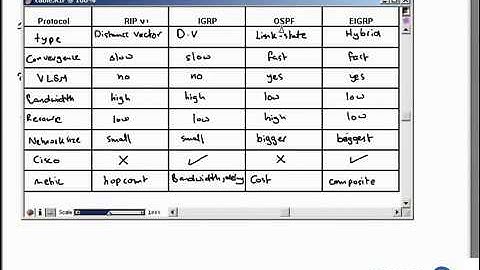 Protocol RIP v1 IGRP OSPF EIGRP
type Distance vector D.V Link-state Hybrid
Convergence slow slow fast fast
VLSM no no yes yes
Bandwidth high high low low
low low high low
Network size small small bigger biggest
Cisco × ✓ × ✓
metric hopcount Bandwidth, Cost composite
Scale Less